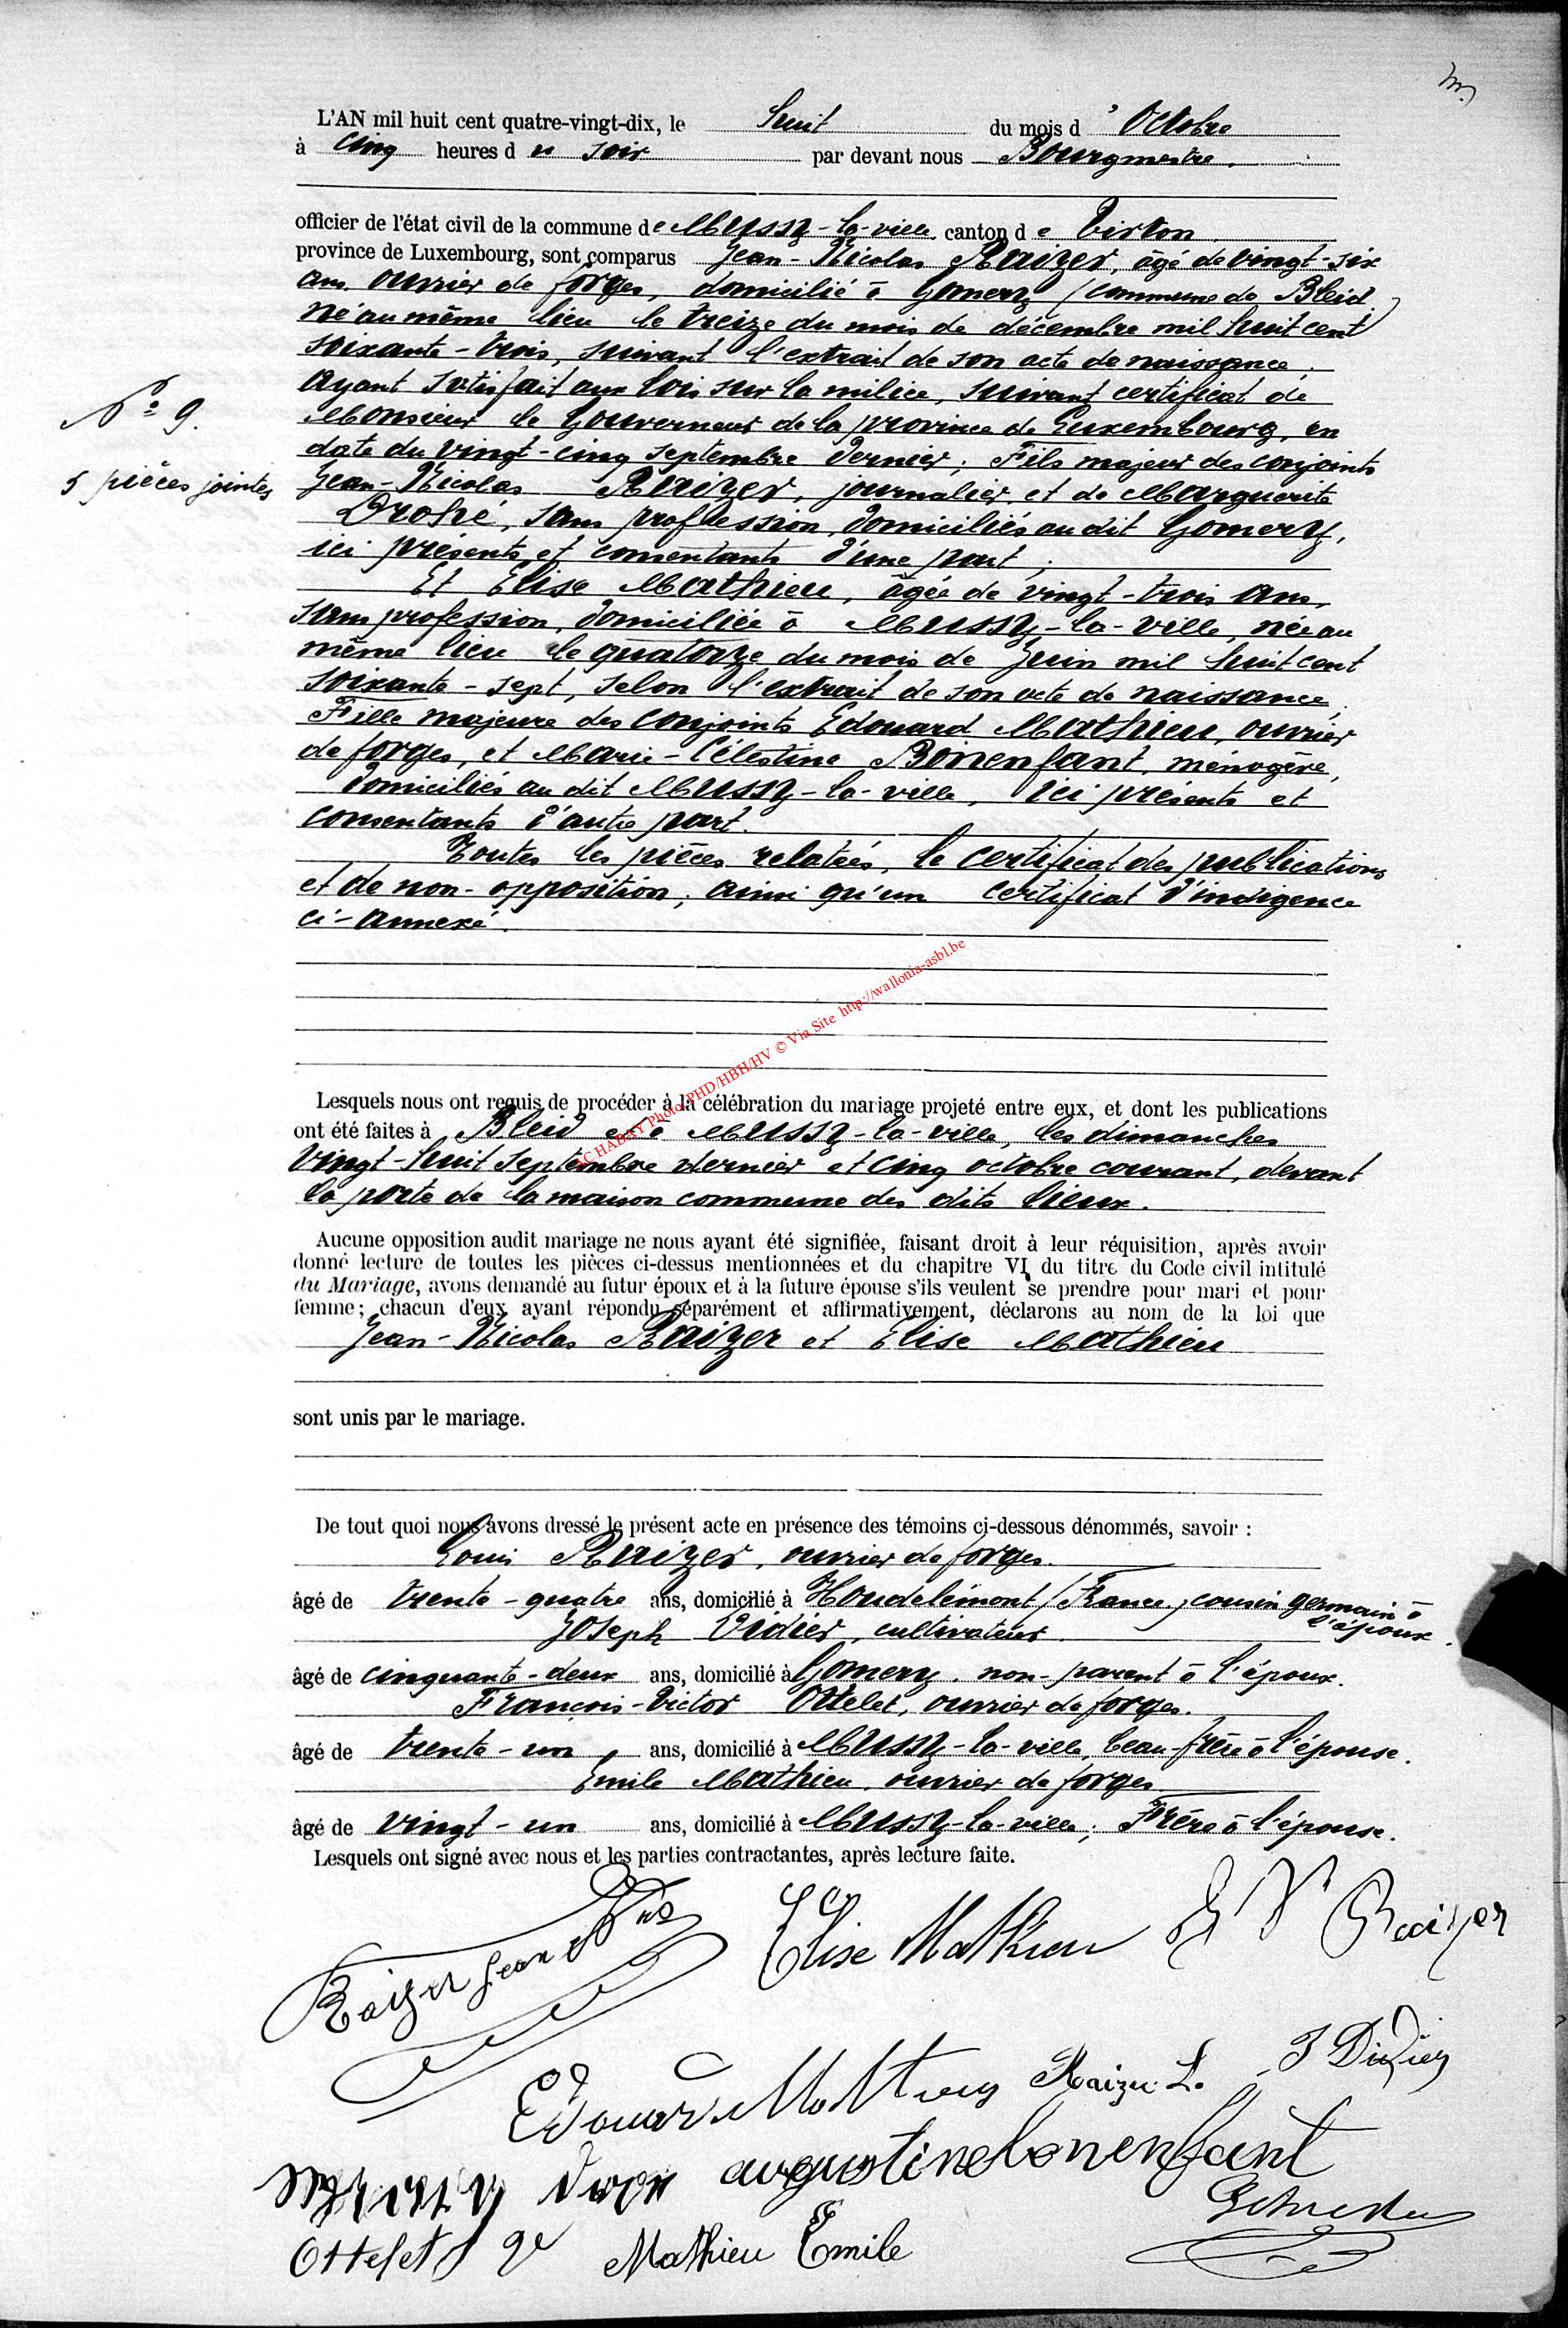 m.
L'AN mil huit cent quatre-vingt-dix, le huit du mois d'Octobre
à Cinq heures du soir par devant nous Bourgmestre.
officier de l'état civil de la commune de Mussy-la-ville canton de Virton
province de Luxembourg, sont comparus Jean-Nicolas Raizer, âgé de vingt-six
ans, ouvrier de forges, domicilié à Gomery (commune de Bleid)
né au même lieu le treize du mois de décembre mil huit cent
soixante-trois, suivant l'extrait de son acte de naissance;
Ayant satisfait aux lois sur la milice, suivant certificat de
N° 9.
Monsieur le Gouverneur de la province de Luxembourg, en
date du vingt-cinq septembre dernier; Fils majeur des conjoints
5 pièces jointes
Jean-Nicolas Raizer, journalier, et de Marguerite
Drohé, sans proffession, domiciliés au dit Gomery,
ici présents et consentants d'une part;
Et Elise Mathieu, âgée de vingt-trois ans,
sans profession, domiciliée à Mussy-la-ville, née au
même lieu le quatorze du mois de Juin mil huit cent
soixante-sept, selon l'extrait de son acte de naissance;
Fille majeure des conjoints Edouard Mathieu, ouvrier
de forges, et Marie-Célestine Bonenfant, ménagère,
domiciliés au dit Mussy-la-ville, ici présents et
consentants d'autre part.
Toutes les pièces relatées, le certificat des publications
et de non-opposition; ainsi qu'un certificat d'indigence
ci-annexé.
AC HABAY Photo PHD/HBH/HV © Via Site http://wallonia-asbl.be
Lesquels nous ont requis de procéder à la célébration du mariage projeté entre eux, et dont les publications
ont été faites à Bleid et à Mussy-la-ville, les dimanches
Vingt-huit septembre dernier et cinq octobre courant, devant
la porte de la maison commune des dits lieux.
Aucune opposition audit mariage ne nous ayant été signifiée, faisant droit à leur réquisition, après avoir
donné lecture de toutes les pièces ci-dessus mentionnées et du chapitre VI du titre du Code civil intitulé
du Mariage, avons demandé au futur époux et à la future épouse s'ils veulent se prendre pour mari et pour
femme; chacun d'eux ayant répondu séparément et affirmativement, déclarons au nom de la loi que
Jean-Nicolas Raizer et Elise Mathieu
sont unis par le mariage.
De tout quoi nous avons dressé le présent acte en présence des témoins ci-dessous dénommés, savoir :
Louis Raizer, ouvrier de forges.
âgé de trente-quatre ans, domicilié à Houdelémont (France), cousin germain à
l'époux.
Joseph Didier, cultivateur.
âgé de cinquante-deux ans, domicilié à Gomery, non-parent à l'époux.
François-Victor Ottelet, ouvrier de forges.
âgé de trente-un ans, domicilié à Mussy-la-ville, beau-frère à l'épouse.
Emile Mathieu, ouvrier de forges.
âgé de vingt-un ans, domicilié à Mussy-la-ville; Frère à l'épouse.
Lesquels ont signé avec nous et les parties contractantes, après lecture faite.
Raizer Jean Elise Mathieu Raizer
Edouard Mathieu Raizer L. J Didier
augustine bonenfant
Ottelet Mathieu Emile